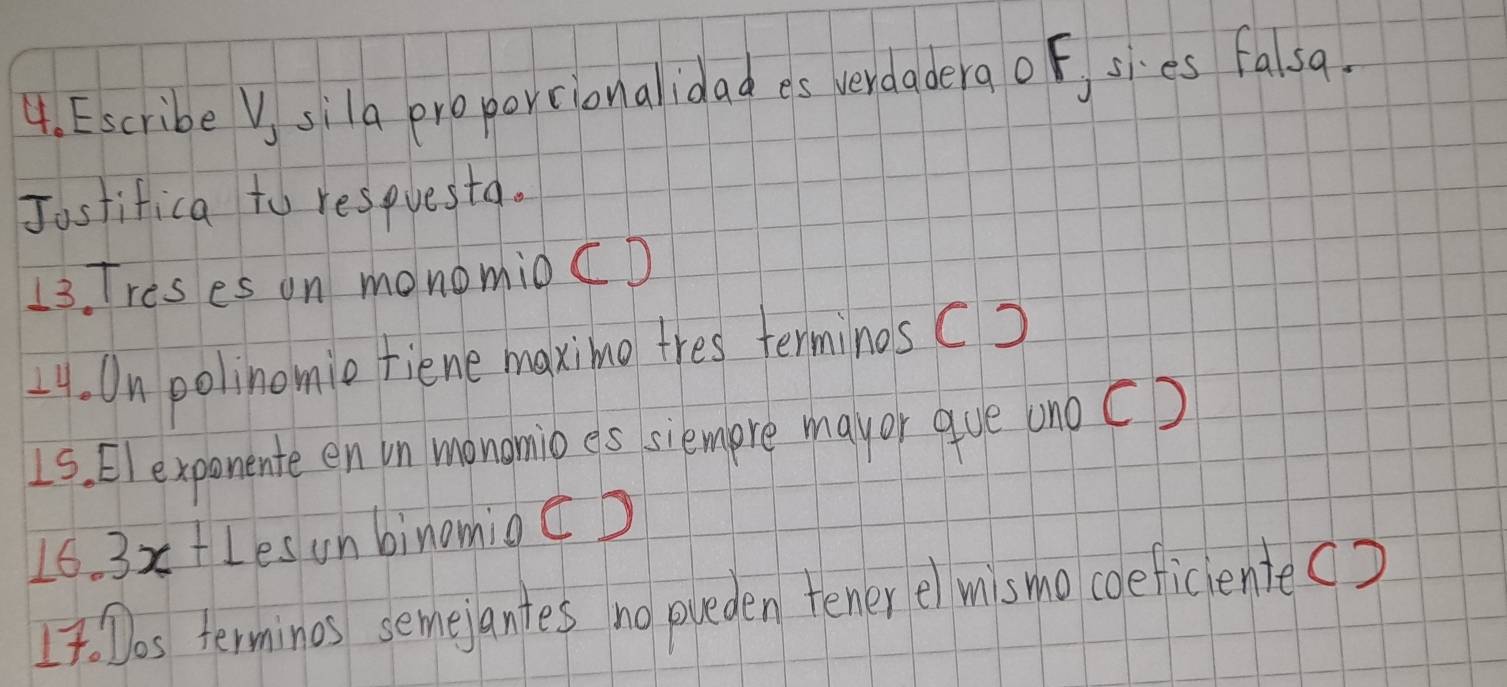 4. Escribe V, si la proporcionalidad es verdadera o F, si es falsa.
Justifica tu respuesta.
13. Tres es un monomio ( )
14. Un polinomio tiene maximo tres terminos ( )
15. El exponente en un monomio es siempre mayor que uno ( )
16. 3x + 1 es un binomio ( )
17. Dos terminos semejantes no pueden tener el mismo coeficiente ( )